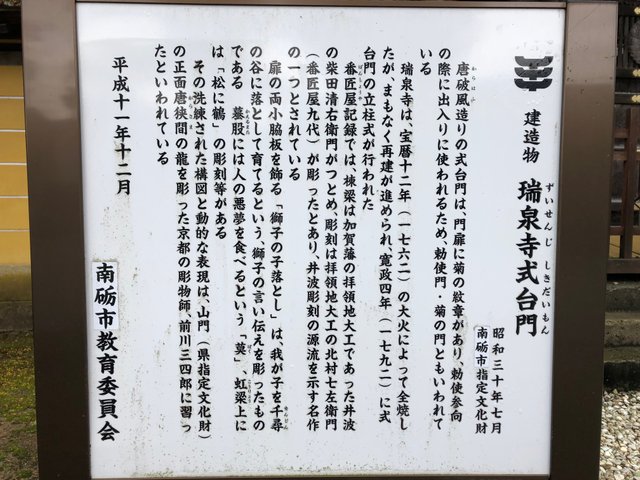 建造物
瑞泉寺式台門
ずいせんじ しきだいもん
昭和三十年七月
南砺市指定文化財
唐破風造りの式台門は、門扉に菊の紋章があり、勅使参向
からはふ
の際に出入りに使われるため、勅使門・菊の門ともいわれて
いる
瑞泉寺は、宝暦十二年(一七六二)の大火によって全焼し
たが、まもなく再建が進められ、寛政四年(一七九二)に式
台門の立柱式が行われた
番匠屋記録では、棟梁は加賀藩の拝領地大工であった井波
ばんしょうや
の柴田清右衛門がつとめ、彫刻は拝領地大工の北村七左衛門
(番匠屋九代)が彫ったとあり、井波彫刻の源流を示す名作
の一つとされている
扉の両小脇板を飾る「獅子の子落とし」は、我が子を千尋
せんじん
の谷に落として育てるという、獅子の言い伝えを彫ったもの
である 蟇股には人の悪夢を食べるという「獏」、虹梁上に
かえるまた
ばく
は「松に鶴」の彫刻等がある
その洗練された構図と動的な表現は、山門(県指定文化財)
の正面唐狭間の龍を彫った京都の彫物師、前川三四郎に習っ
たといわれている
平成十一年十二月
南砺市教育委員会